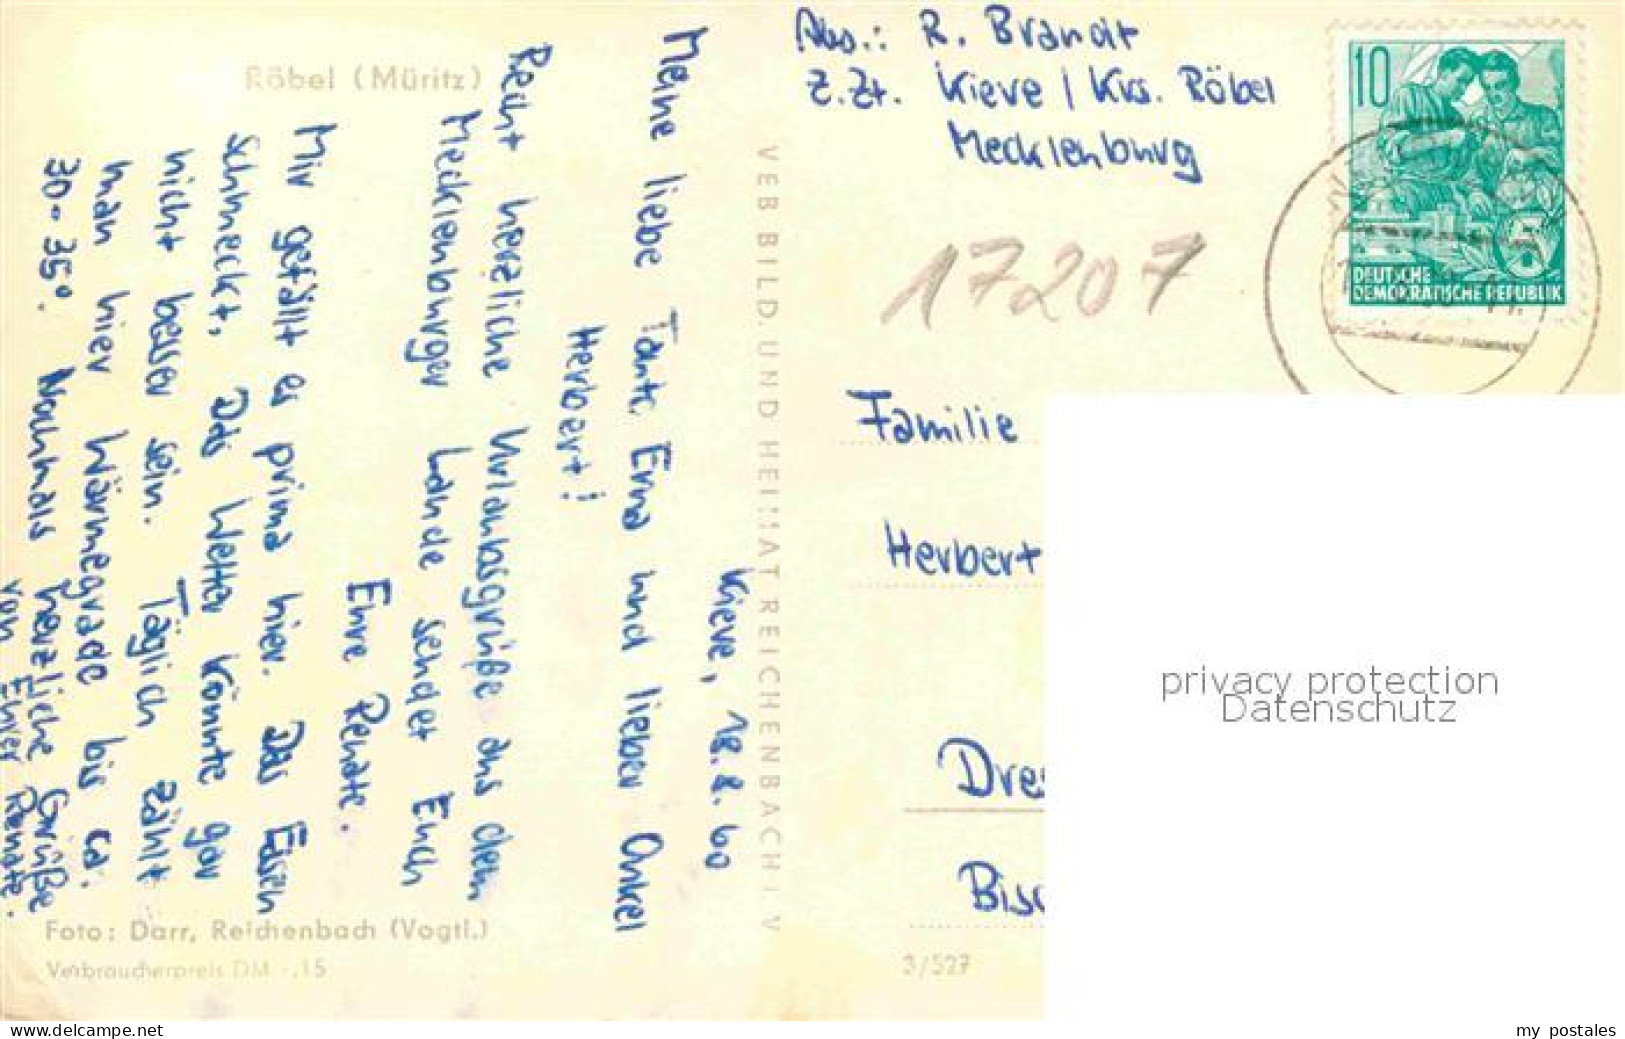 Röbel (Müritz)
Kieve, 18.8.60
Meine liebe Tante Erna und lieber Onkel
Herbert!
Recht herzliche Urlaubsgrüße aus dem
Mecklenburger Lande sendet Euch
Eure Renate.
Mir gefällt es prima hier. Das Essen
schmeckt. Das Wetter könnte gar
nicht besser sein. Täglich zählt
man hier Wärmegrade bis ca.
30-35°. Nochmals herzliche Grüße
von Eurer Renate.
Foto: Darr, Reichenbach (Vogtl.)
Verbraucherpreis DM -,15
VEB BILD UND HEIMAT REICHENBACH I. V.
Abs.: R. Brandt
z.Zt. Kieve / Krs. Röbel
Mecklenburg
10
5
DEUTSCHE
DEMOKRATISCHE REPUBLIK
17207
Familie
Herbert
Dres
Bisc
3/527
privacy protection
Datenschutz
www.delcampe.net
my_postales